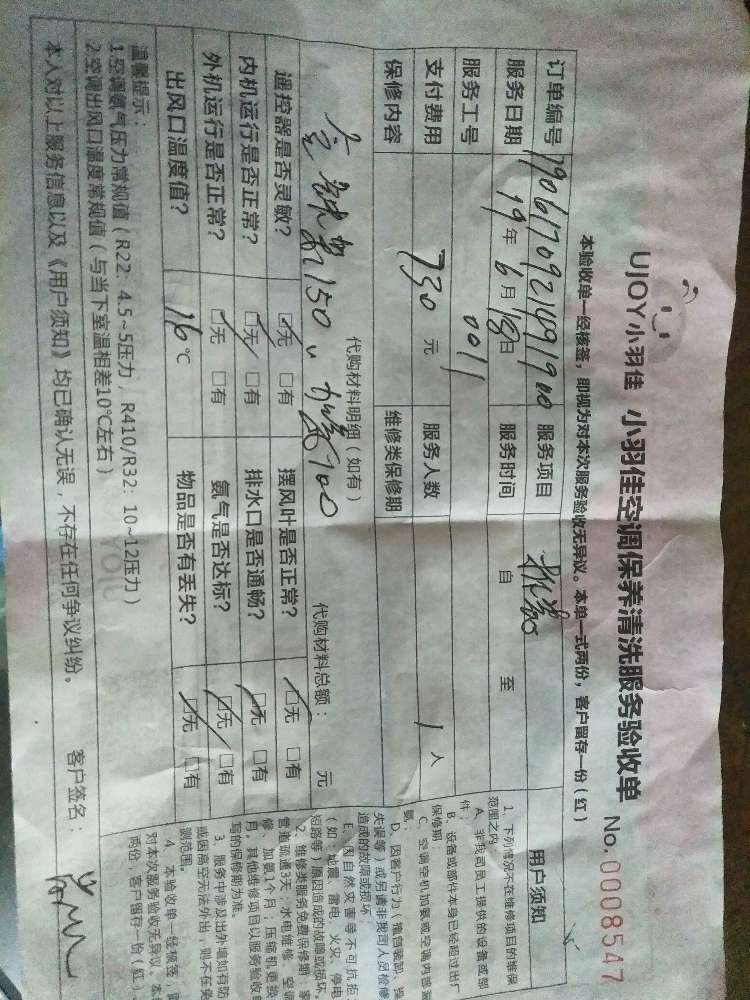 UJOY小羽佳 小羽佳空调保养清洗服务验收单 No.0008547
本验收单一经核签，即视为对本次服务验收无异议。本单一式两份，客户留存一份（红）
订单编号 服务项目
服务日期 19年6月18日 服务时间 自 至
服务工号 0011
支付费用 730元 服务人数 1人
保修内容 维修类保修期
代购材料明细（如有） 代购材料总额： 元
150
遥控器是否灵敏? ☑无 □有 摆风叶是否正常? ☑无 □有
内机运行是否正常? ☑无 □有 排水口是否通畅? ☑无 □有
外机运行是否正常? ☑无 □有 氨气是否达标? ☑无 □有
出风口温度值? 16℃ 物品是否有丢失? ☑无 □有
温馨提示：
1.空调氨气压力常规值（R22：4.5~5压力，R410/R32：10~12压力）
2.空调出风口温度常规值（与当下室温相差10℃左右）
本人对以上服务信息以及《用户须知》均已确认无误，不存在任何争议纠纷。 客户签名：
用户须知
1、下列情况不在维修项目的维保
范围之内
A、非我司员工提供的设备或部
件；
B、设备或部件本身已经超过出厂
保修期；
C、空调空机加氨或空调内漏
氨；
D、因客户行为
失误等）或另请非我司人员检修
造成的故障或损坏；
E、因自然灾害等不可抗拒
（如：地震、雷电、火灾、停电
短路等）原因造成的故障或损坏。
2、维修类服务免费保修期：
管道疏通3天；水电维修、空调
修、加氨1个月；压缩机更换
月。其他维修项目以服务验收单
写的保修期为准。
3、服务中涉及出外墙如有防
或因高空无法外出，则不在
测范围。
4、本验收单一经核签，即
对本次服务验收无异议，本单
两份，客户留存一份（红）